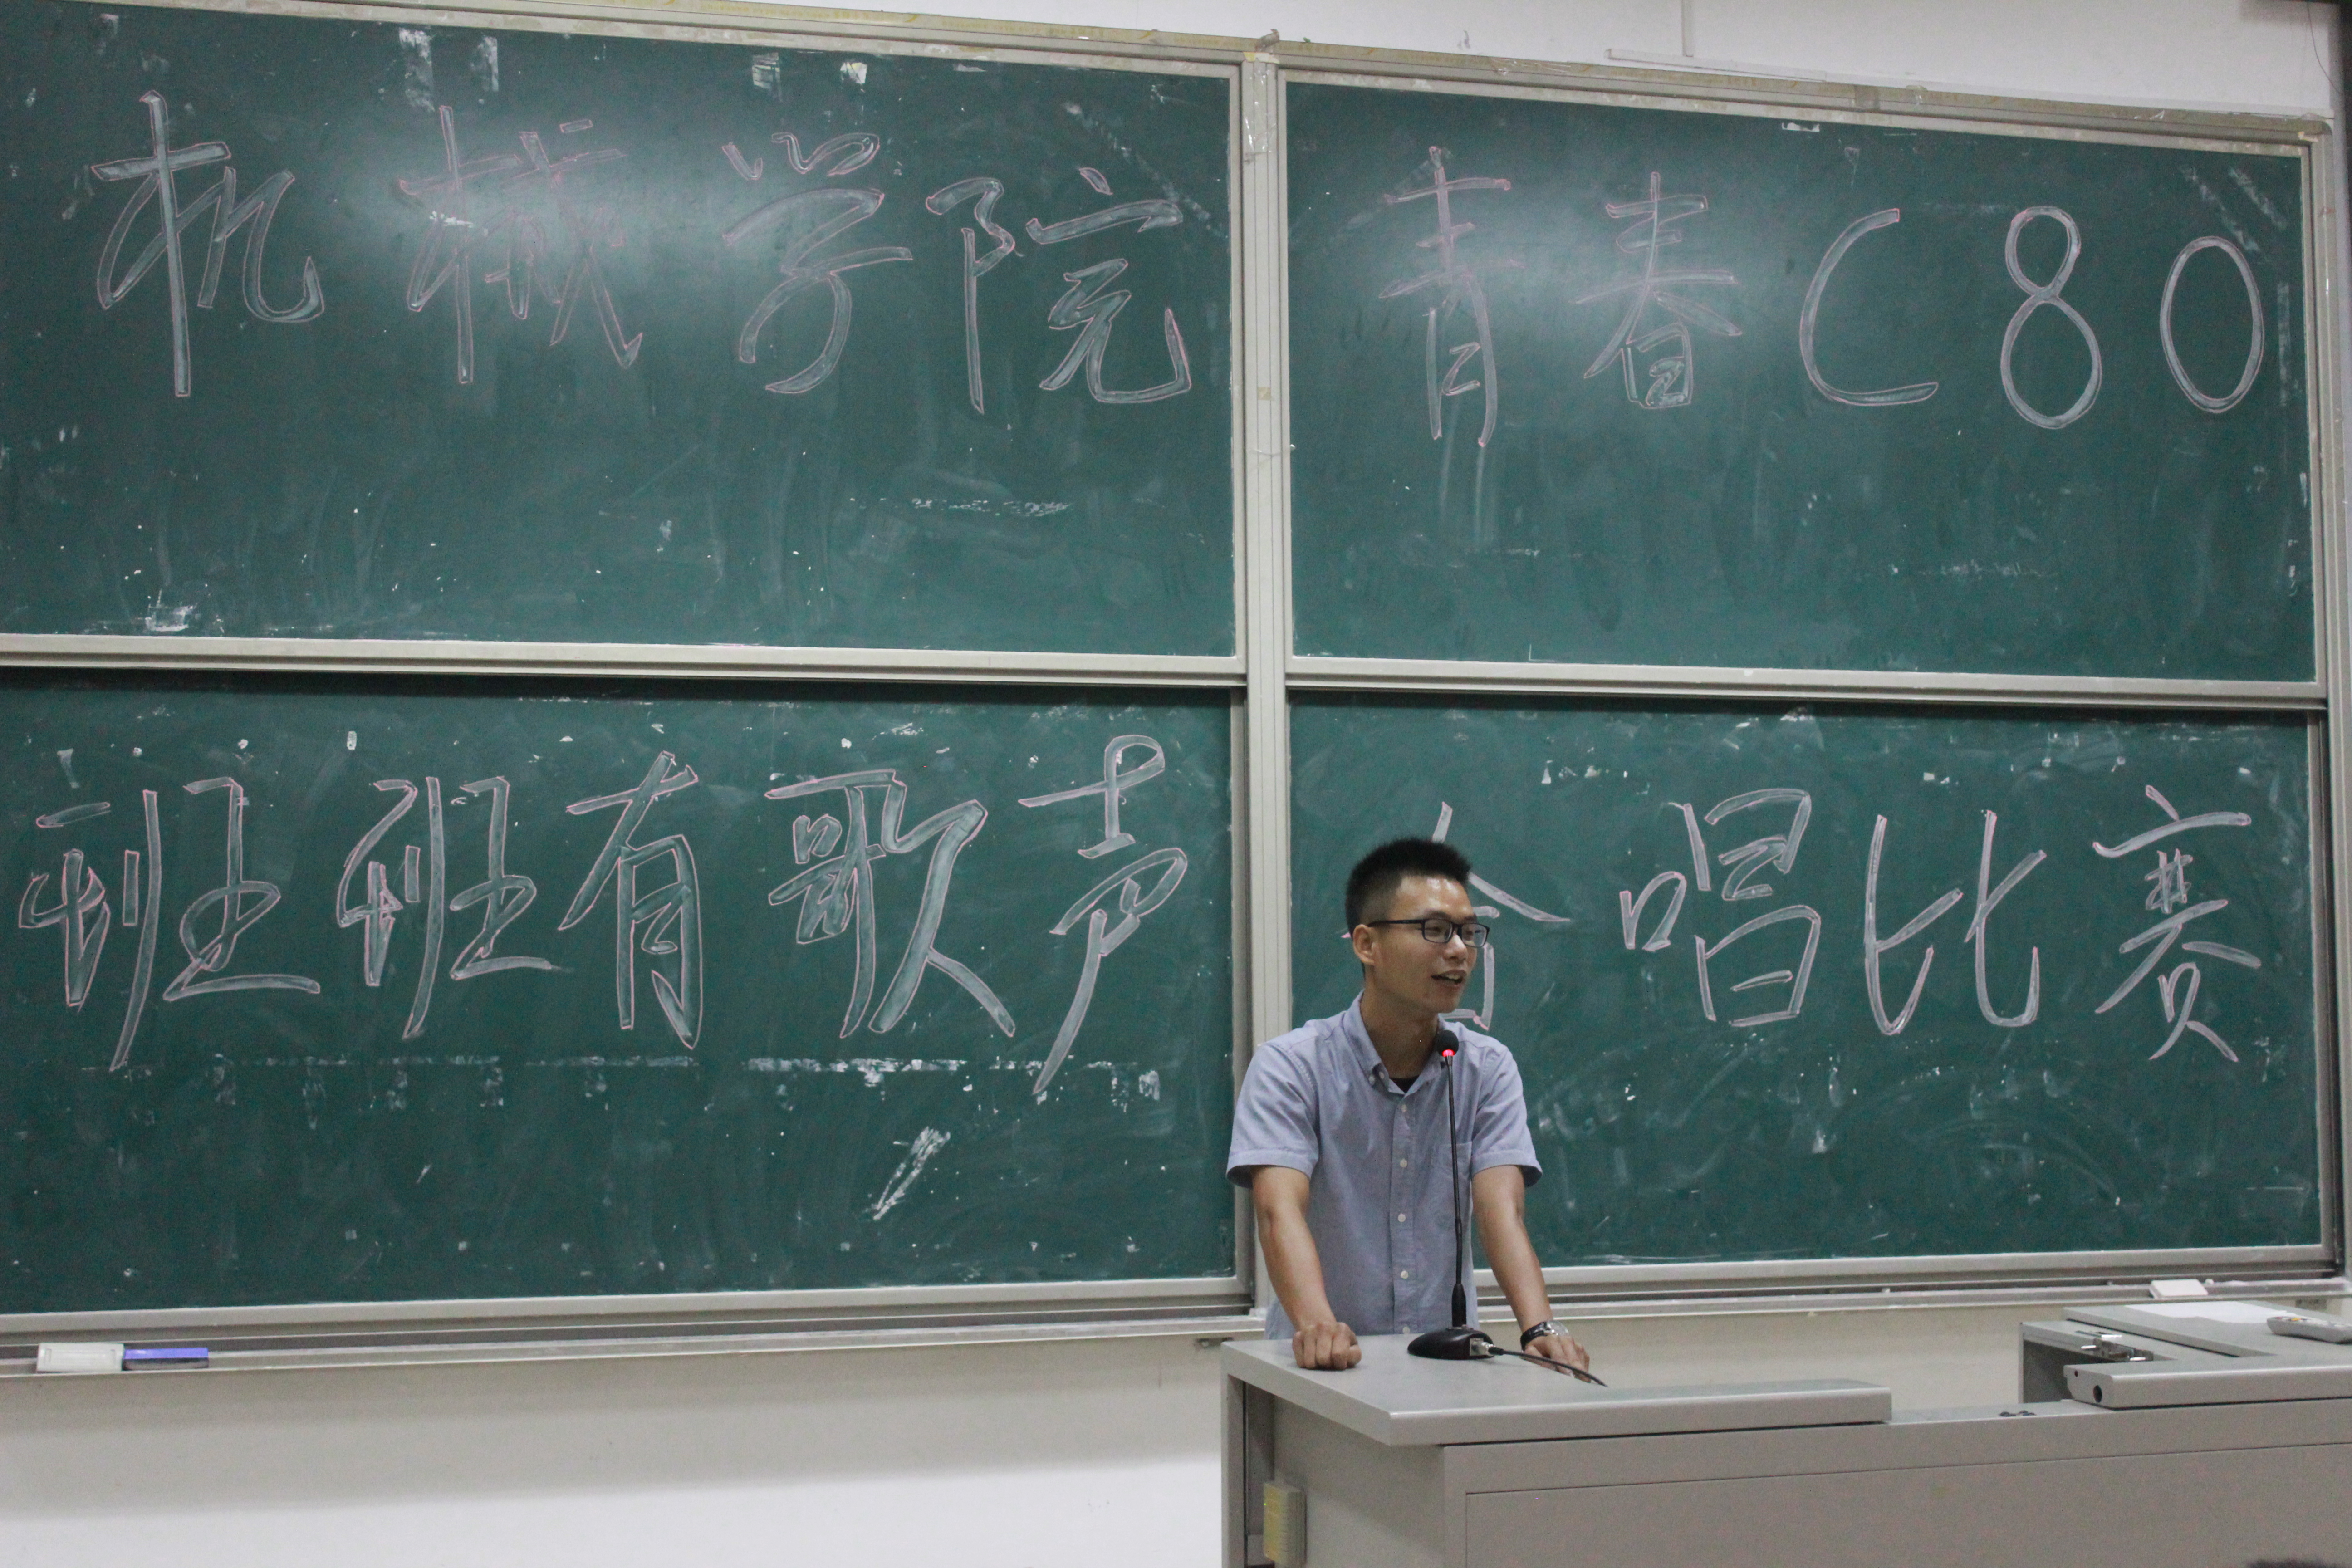 机械学院 青春C80
班班有歌声 合唱比赛